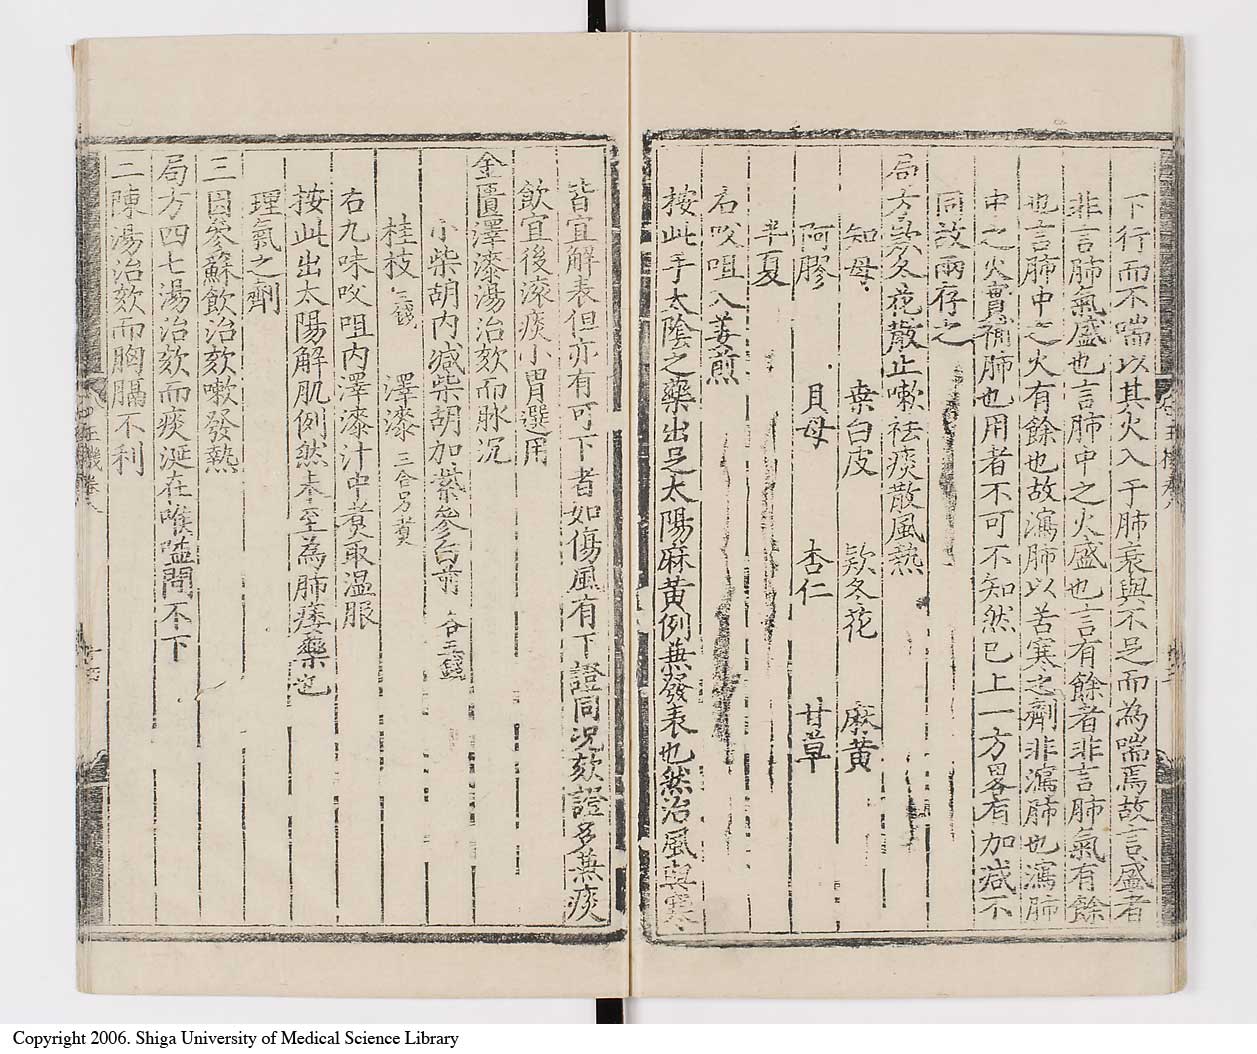 下行而不喘以其火入于肺衰與不足而為喘焉故言盛者
非言肺氣盛也言肺中之火盛也言有餘者非言肺氣有餘
也言肺中之火有餘也故瀉肺以苦寒之劑非瀉肺也瀉肺
中之火實補肺也用者不可不知然已上一方畧有加減不
同故兩存之
局方款冬花散止嗽祛痰散風熱
知母 桑白皮 款冬花 麻黄
阿膠 貝母 杏仁 甘草
半夏
右㕮咀入姜煎
按此手太陰之藥出足太陽麻黄例兼發表也然治風與寒
皆宜解表但亦有可下者如傷風有下證同况欬證多兼痰
飲宜後滚痰小胃選用
金匱澤漆湯治欬而脉沉
小柴胡内减柴胡加紫參白前 各五錢
桂枝 三錢 澤漆 三合另煮
右九味㕮咀内澤漆汁中煮取温服
按此出太陽解肌例然本至為肺痿藥也
理氣之劑
三因參蘇飲治欬嗽發熱
局方四七湯治欬而痰涎在喉嗌間不下
二陳湯治欬而胸膈不利
Copyright 2006. Shiga University of Medical Science Library